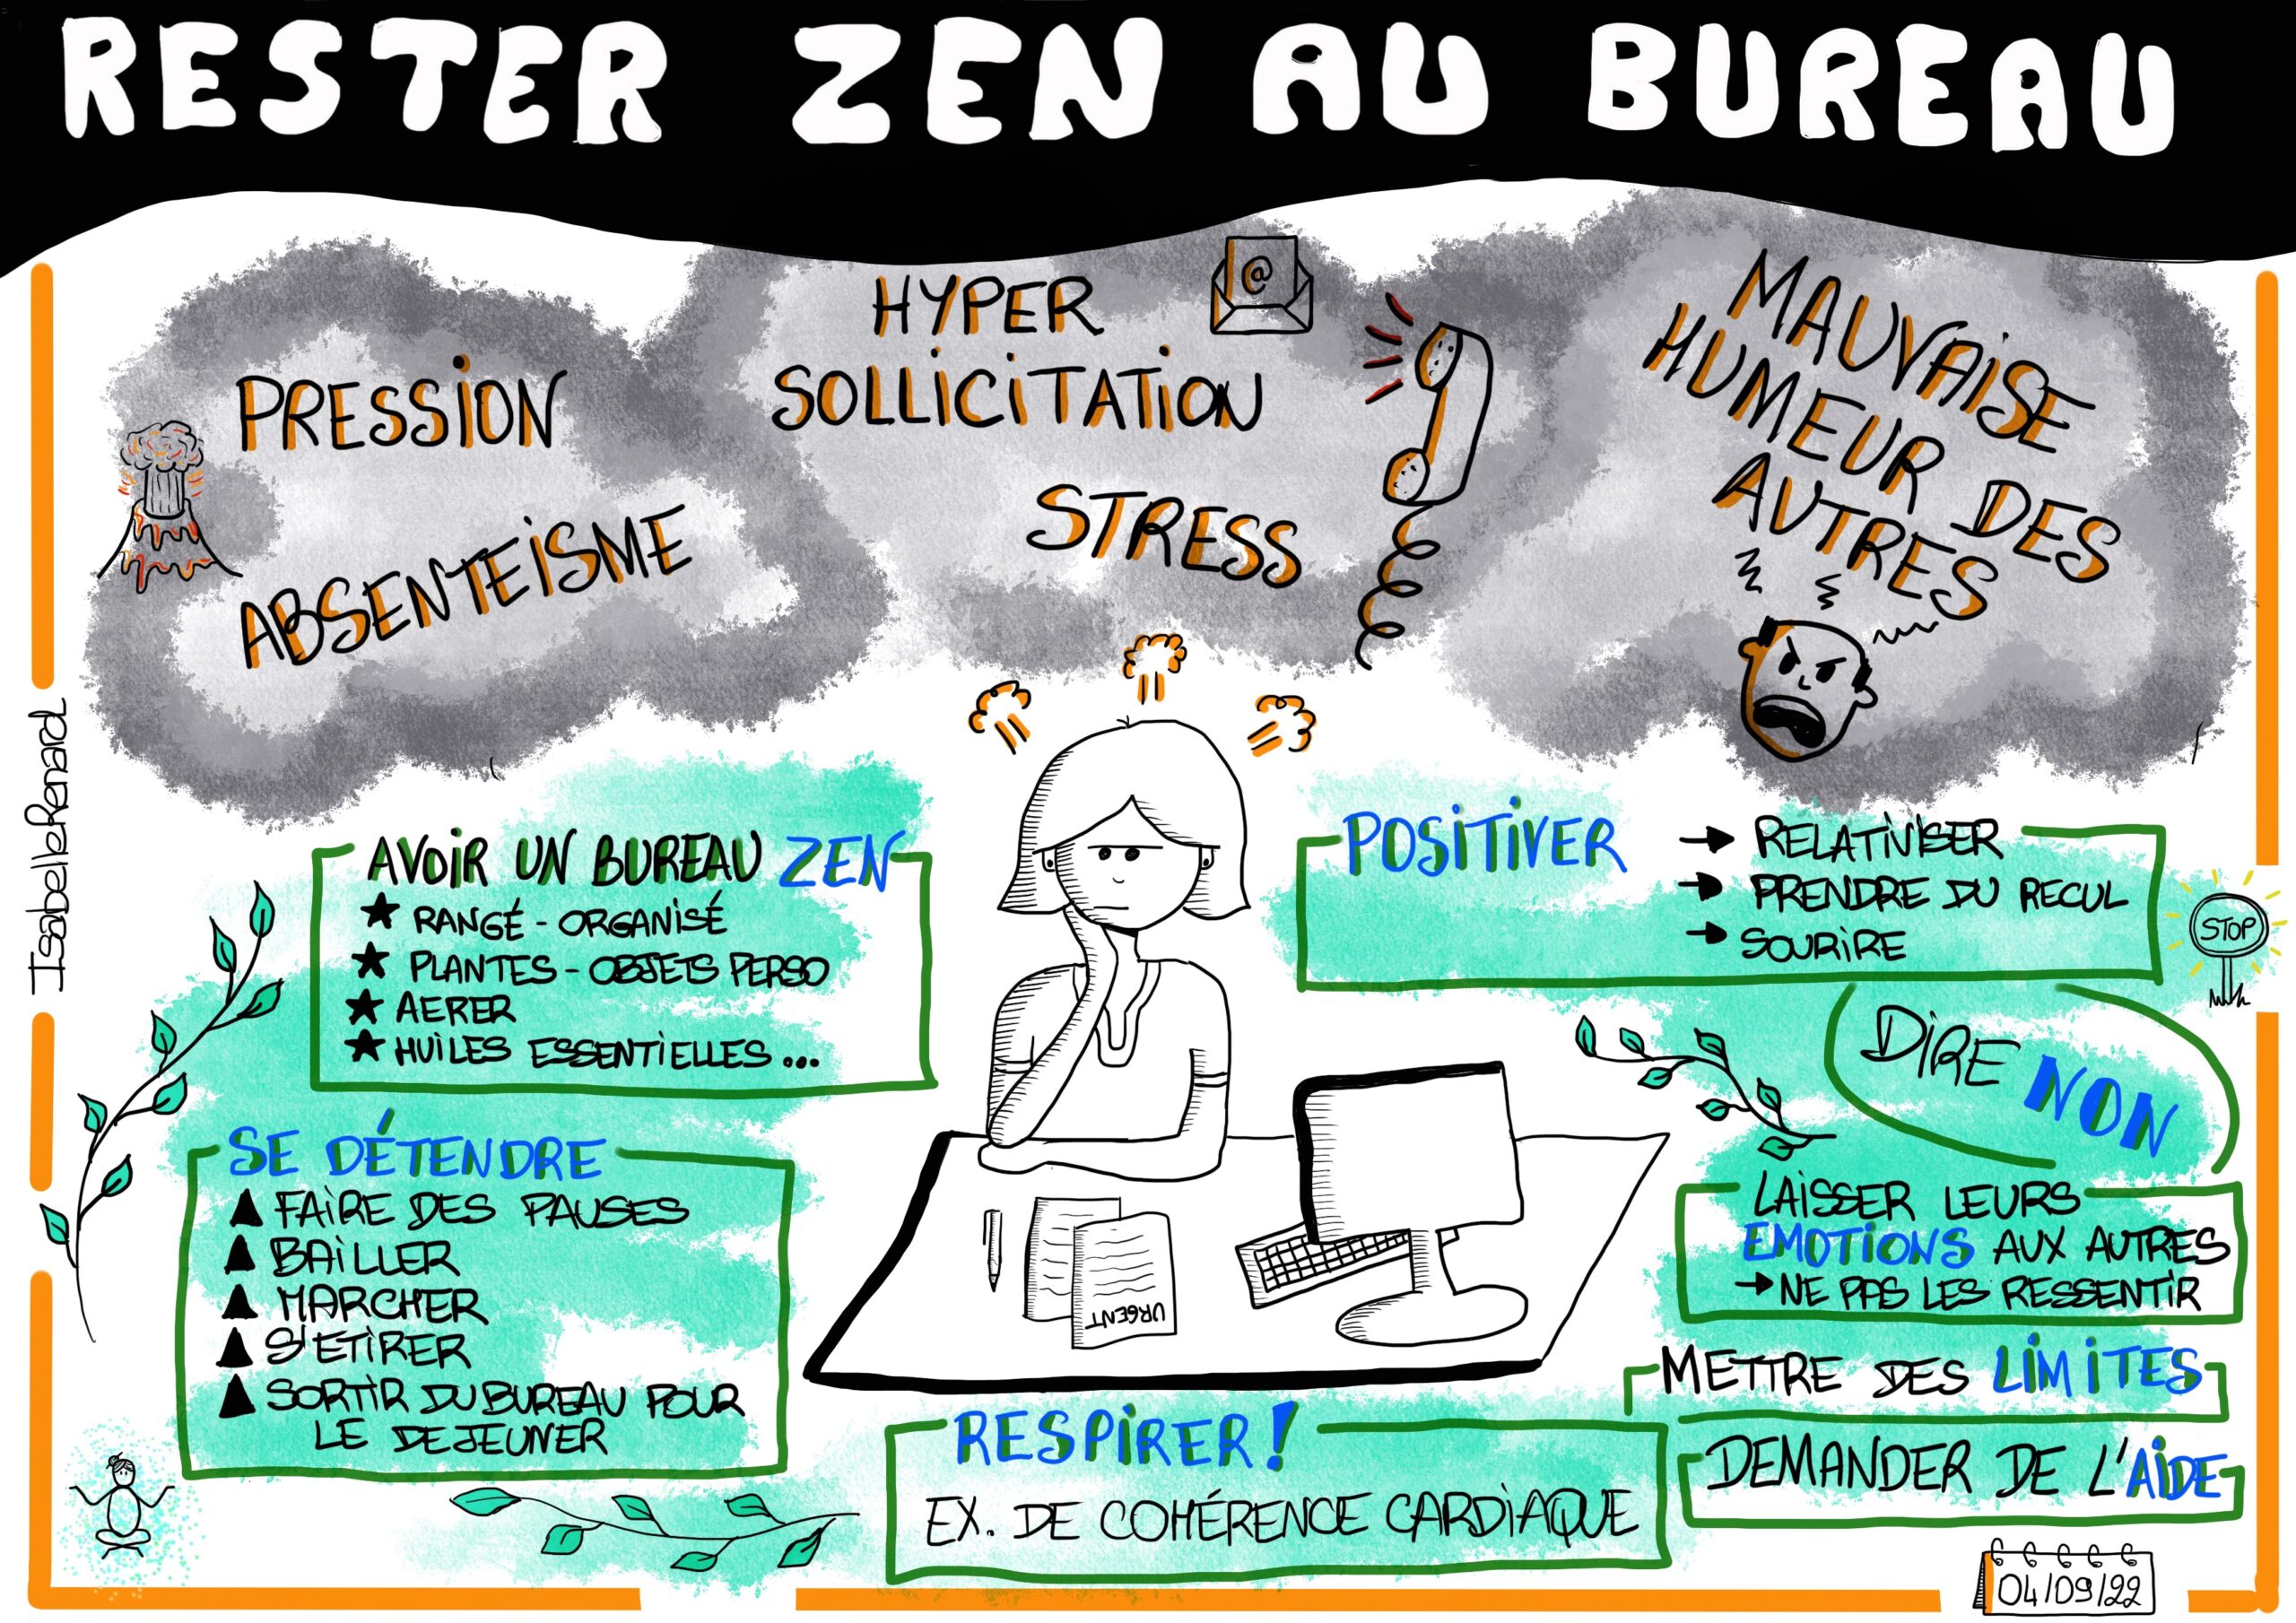 RESTER ZEN AU BUREAU
PRESSION
ABSENTEISME
HYPER
SOLLICITATION
@
STRESS
MAUVAISE
HUMEUR DES
AUTRES
Isabelle Renard
AVOIR UN BUREAU ZEN
RANGÉ - ORGANISÉ
PLANTES - OBJETS PERSO
AERER
HUILES ESSENTIELLES ...
SE DÉTENDRE
FAIRE DES PAUSES
BAILLER
MARCHER
S'ETIRER
SORTIR DU BUREAU POUR
LE DEJEUNER
URGENT
RESPIRER !
EX. DE COHÉRENCE CARDIAQUE
POSITIVER
→ RELATIVISER
→ PRENDRE DU RECUL
→ SOURIRE
STOP
DIRE NON
LAISSER LEURS
EMOTIONS AUX AUTRES
→ NE PAS LES RESSENTIR
METTRE DES LIMITES
DEMANDER DE L'AIDE
04/09/22